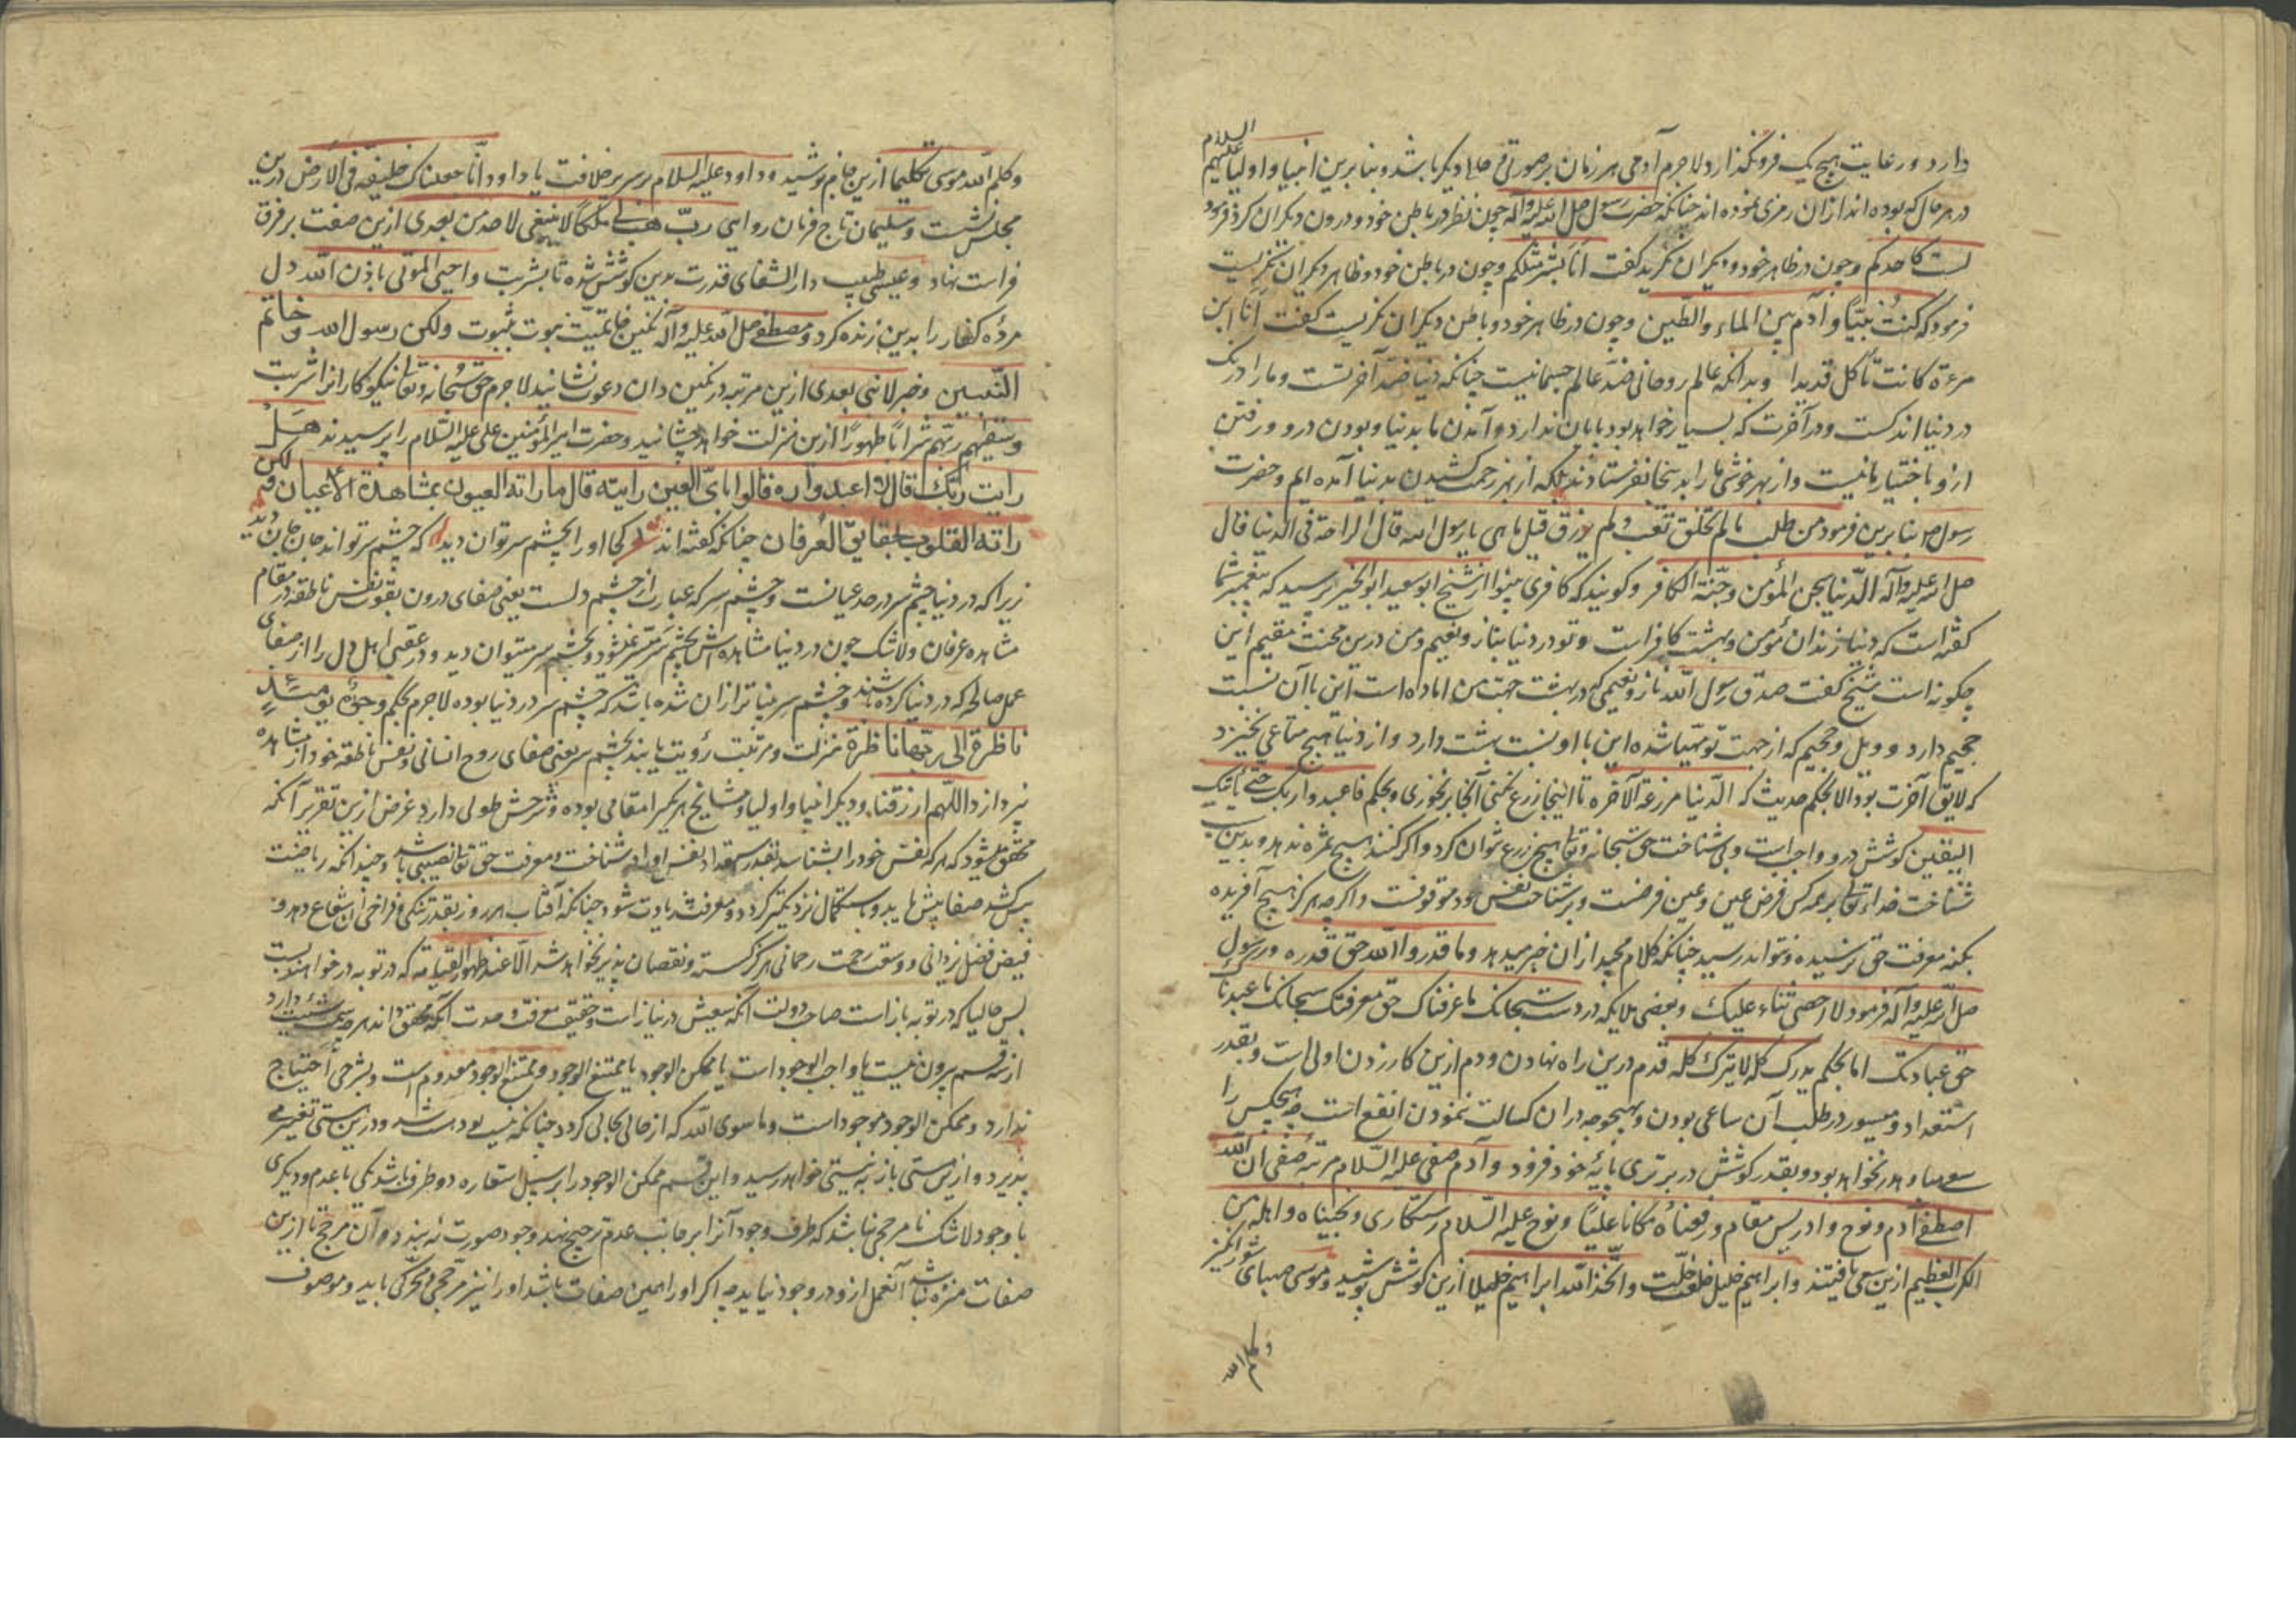 دارد و رعایت هیچ یک فرو نگذارد لاجرم آدمی هر زمان بر صورتی و حالی دیگر باشد و بنابرین انبیا و اولیا علیهم السلام
در هر حال که بوده اند از آن رمزی نموده اند چنانکه حضرت رسول صلی الله علیه وآله چون نظر در باطن خود و درون دیگران کرد فرمود
لست کاحدکم و چون در ظاهر خود و دیگران نگرید گفت انا بشر مثلکم و چون در باطن خود و ظاهر دیگران نگریست
فرمود که کنت نبیّاً و آدم بین الماء والطین و چون در ظاهر خود و باطن دیگران نگریست گفت انا ابن
مرءة کانت تأکل قدیدا و بدانکه عالم روحانی ضد عالم جسمانیست چنانکه دنیا ضد آخرتست و ما را درنگ
در دنیا اندکست و در آخرت که بسیار خواهد بود پایان ندارد و آمدن ما بدنیا و بودن درو و رفتن
ازو باختیار ما نیست و از بهر خوشی ما را بدینجا نفرستادند بلکه از بهر زحمت کشیدن بدنیا آمده ایم و حضرت
رسول ص بنابرین فرمود من طلب ما لم یخلق تعب و لم یرزق قیل ما هی یا رسول الله قال الراحة فی الدنیا قال
صلی الله علیه وآله الدنیا سجن المؤمن وجنّة الکافر و کویند که کافری بینوا از شیخ ابو سعید ابو الخیر پرسید که پیغمبر شما
گفته است که دنیا زندان مؤمن و بهشت کافر است و تو در دنیا بناز و نعیم و من درین محنت مقیم این
چکونه است شیخ گفت صدق رسول الله ناز و نعیمی که در بهشت جهت من اماده است این با آن نسبت
جحیم دارد و ویل و جحیم که از جهت تو مهیا شده این با او نسبت بهشت دارد و از دنیا هیچ متاعی نخیزد
که لایق آخرت بود الا بحکم حدیث که الدنیا مزرعة الآخرة تا اینجا زرع نکنی آنجا بر نخوری و بحکم فاعبد ربک حتی یأتیک
الیقین کوشش درو واجبست و بی شناخت حق سبحانه وتعالی هیچ زرع نتوان کرد و اگر کنند هیچ ثمره ندهد و بدین سبب
شناخت خدای تعالی بر همه کس فرض عین و عین فرضست و بر شناخت نفس خود موقوفست و اگر چه هرگز هیچ آفریده
بکنه معرفت حق نرسیده و نتواند رسید چنانکه کلام مجید از آن خبر میدهد وما قدروا الله حق قدره و رسول
صلی الله علیه وآله فرمود لا احصی ثناء علیک و بعضی ملایکه در دست سبحانک ما عرفناک حق معرفتک سبحانک ما عبدناک
حق عبادتک اما بحکم ما لا یدرک کله لا یترک کله قدم درین راه نهادن و دم ازین کار زدن اولی است و بقدر
استعداد و میسور در طلب آن ساعی بودن و بهیچوجه در آن کسالت ننمودن انفع است چه هیچکس را
سعی هبا و هدر نخواهد بود و بقدر کوشش در برتری پایهٔ خود فزود و آدم صفی علیه السلام مرتبهٔ صفی ان الله
اصطفی آدم ونوح و ادریس مقام و رفعناه مکانا علیّا و نوح علیه السلام رستکاری و نجیناه و اهله من
الکرب العظیم ازین سعی یافتند و ابراهیم خلیل خلعت خلّت و اتخذ الله ابراهیم خلیلا ازین کوشش پوشید و موسی صهبای شورانگیز
وکلم الله
وکلم الله موسی تکلیما ازین جام نوشید و داود علیه السلام بر سریر خلافت یا داود انّا جعلناک خلیفة فی الارض درین
مجلس نشست و سلیمان تاج فرمان روایی ربّ هب لی ملکاً لا ینبغی لاحد من بعدی ازین صفت بر فرق
فراست نهاد و عیسی طبیب دار الشفای قدرت بدین کوشش شده تا بشربت واحیی الموتی باذن الله دل
مردهٔ کفار را بدین زنده کرد و مصطفی صلی الله علیه وآله نگین خاتمیت نبوت بثبوت ولکن رسول الله وخاتم
النبیین و خبر لا نبی بعدی ازین مرتبه در نگین دان دعوت نشانید لاجرم حق سبحانه وتعالی نیکوکارانرا شربت
وسقیهم ربهم شراباً طهوراً ازین منزلت خواهد چشانید و حضرت امیر المؤمنین علی علیه السلام را پرسیدند هل
رایت ربّک قال لا اعبد رباً لم اره قالوا بایّ العین رایته قال ما راته العیون بمشاهدة الاعیان ولکن
راته القلوب بحقایق العرفان چنانکه گفته اند شعر کجا او را بچشم سر توان دید که چشم سر تواند جان جان دید
زیرا که در دنیا چشم سر در صد عیانست و چشم سر که عبارت از چشم دلست یعنی صفای درون بقوت نفس ناطقه در مقام
مشاهدهٔ عرفان ولاشک چون در دنیا مشاهده اش بچشم سر میسر نمیشود و بچشم سر میتوان دید و در عقبی اهل دل را از صفای
عمل صالح که در دنیا کرده باشند و چشم سر بیناتر از آن شده باشد که چشم سر در دنیا بوده لاجرم بحکم وجوه یومئذ
ناظرة الی ربها ناظرة منزلت و مرتبت رؤیت یابند بچشم سر یعنی صفای روح انسانی و نفس ناطقه خود از مشاهده
پردازد اللهم ارزقنا و دیگر انبیا و اولیا و مشایخ هر یکی را مقامی بوده و شرحش طولی دارد غرض ازین تقریر آنکه
محقق میشود که هر که نفس خود را بشناسد بقدر استعداد نفس او را در شناخت و معرفت حق تعالی نصیبی باشد و چندانکه ریاضت
بیش کشد صفا بیش یابد و باستکمال نزدیکتر گردد و معرفتش زیادت شود چنانکه آفتاب هر روز بقدر تنکی و فراخی آن شعاع دهد و
فیض فضل یزدانی و وسعت رحمت رحمانی هرگز گسسته و نقصان پذیر نخواهد شد الّا عند ظهور القیامة که در توبه در خواهند بست
پس حالیا که در توبه باز است صاحب دولت آنکه سعیش در نیاز است و تحقیق معرفت وحدت آنکه محقق داند هر چه سمت شیئیت دارد
از سه قسم بیرون نیست یا واجب الوجود است یا ممکن الوجود یا ممتنع الوجود و ممتنع الوجود معدوم است و بشرحی احتیاج
ندارد و ممکن الوجود موجود است و ما سوی الله که از حالی بحالی گردد چنانکه نیست بود هست شد و درین هستی تغییر می
پذیرد و ازین هستی باز به نیستی خواهد رسید و این قسم ممکن الوجود را بر سبیل استعاره دو طرف باشد یکی با عدم و دیگری
با وجود لاشک تا مرجحی نباشد که طرف وجود آنرا بر جانب عدم ترجیح نهد وجود صورت نه بندد و آن مرجح تا ازین
صفات منزه نباشد آن عمل ازو در وجود نیاید چه اگر او را همین صفات باشد او را نیز مرجحی و محرکی باید و موصوف